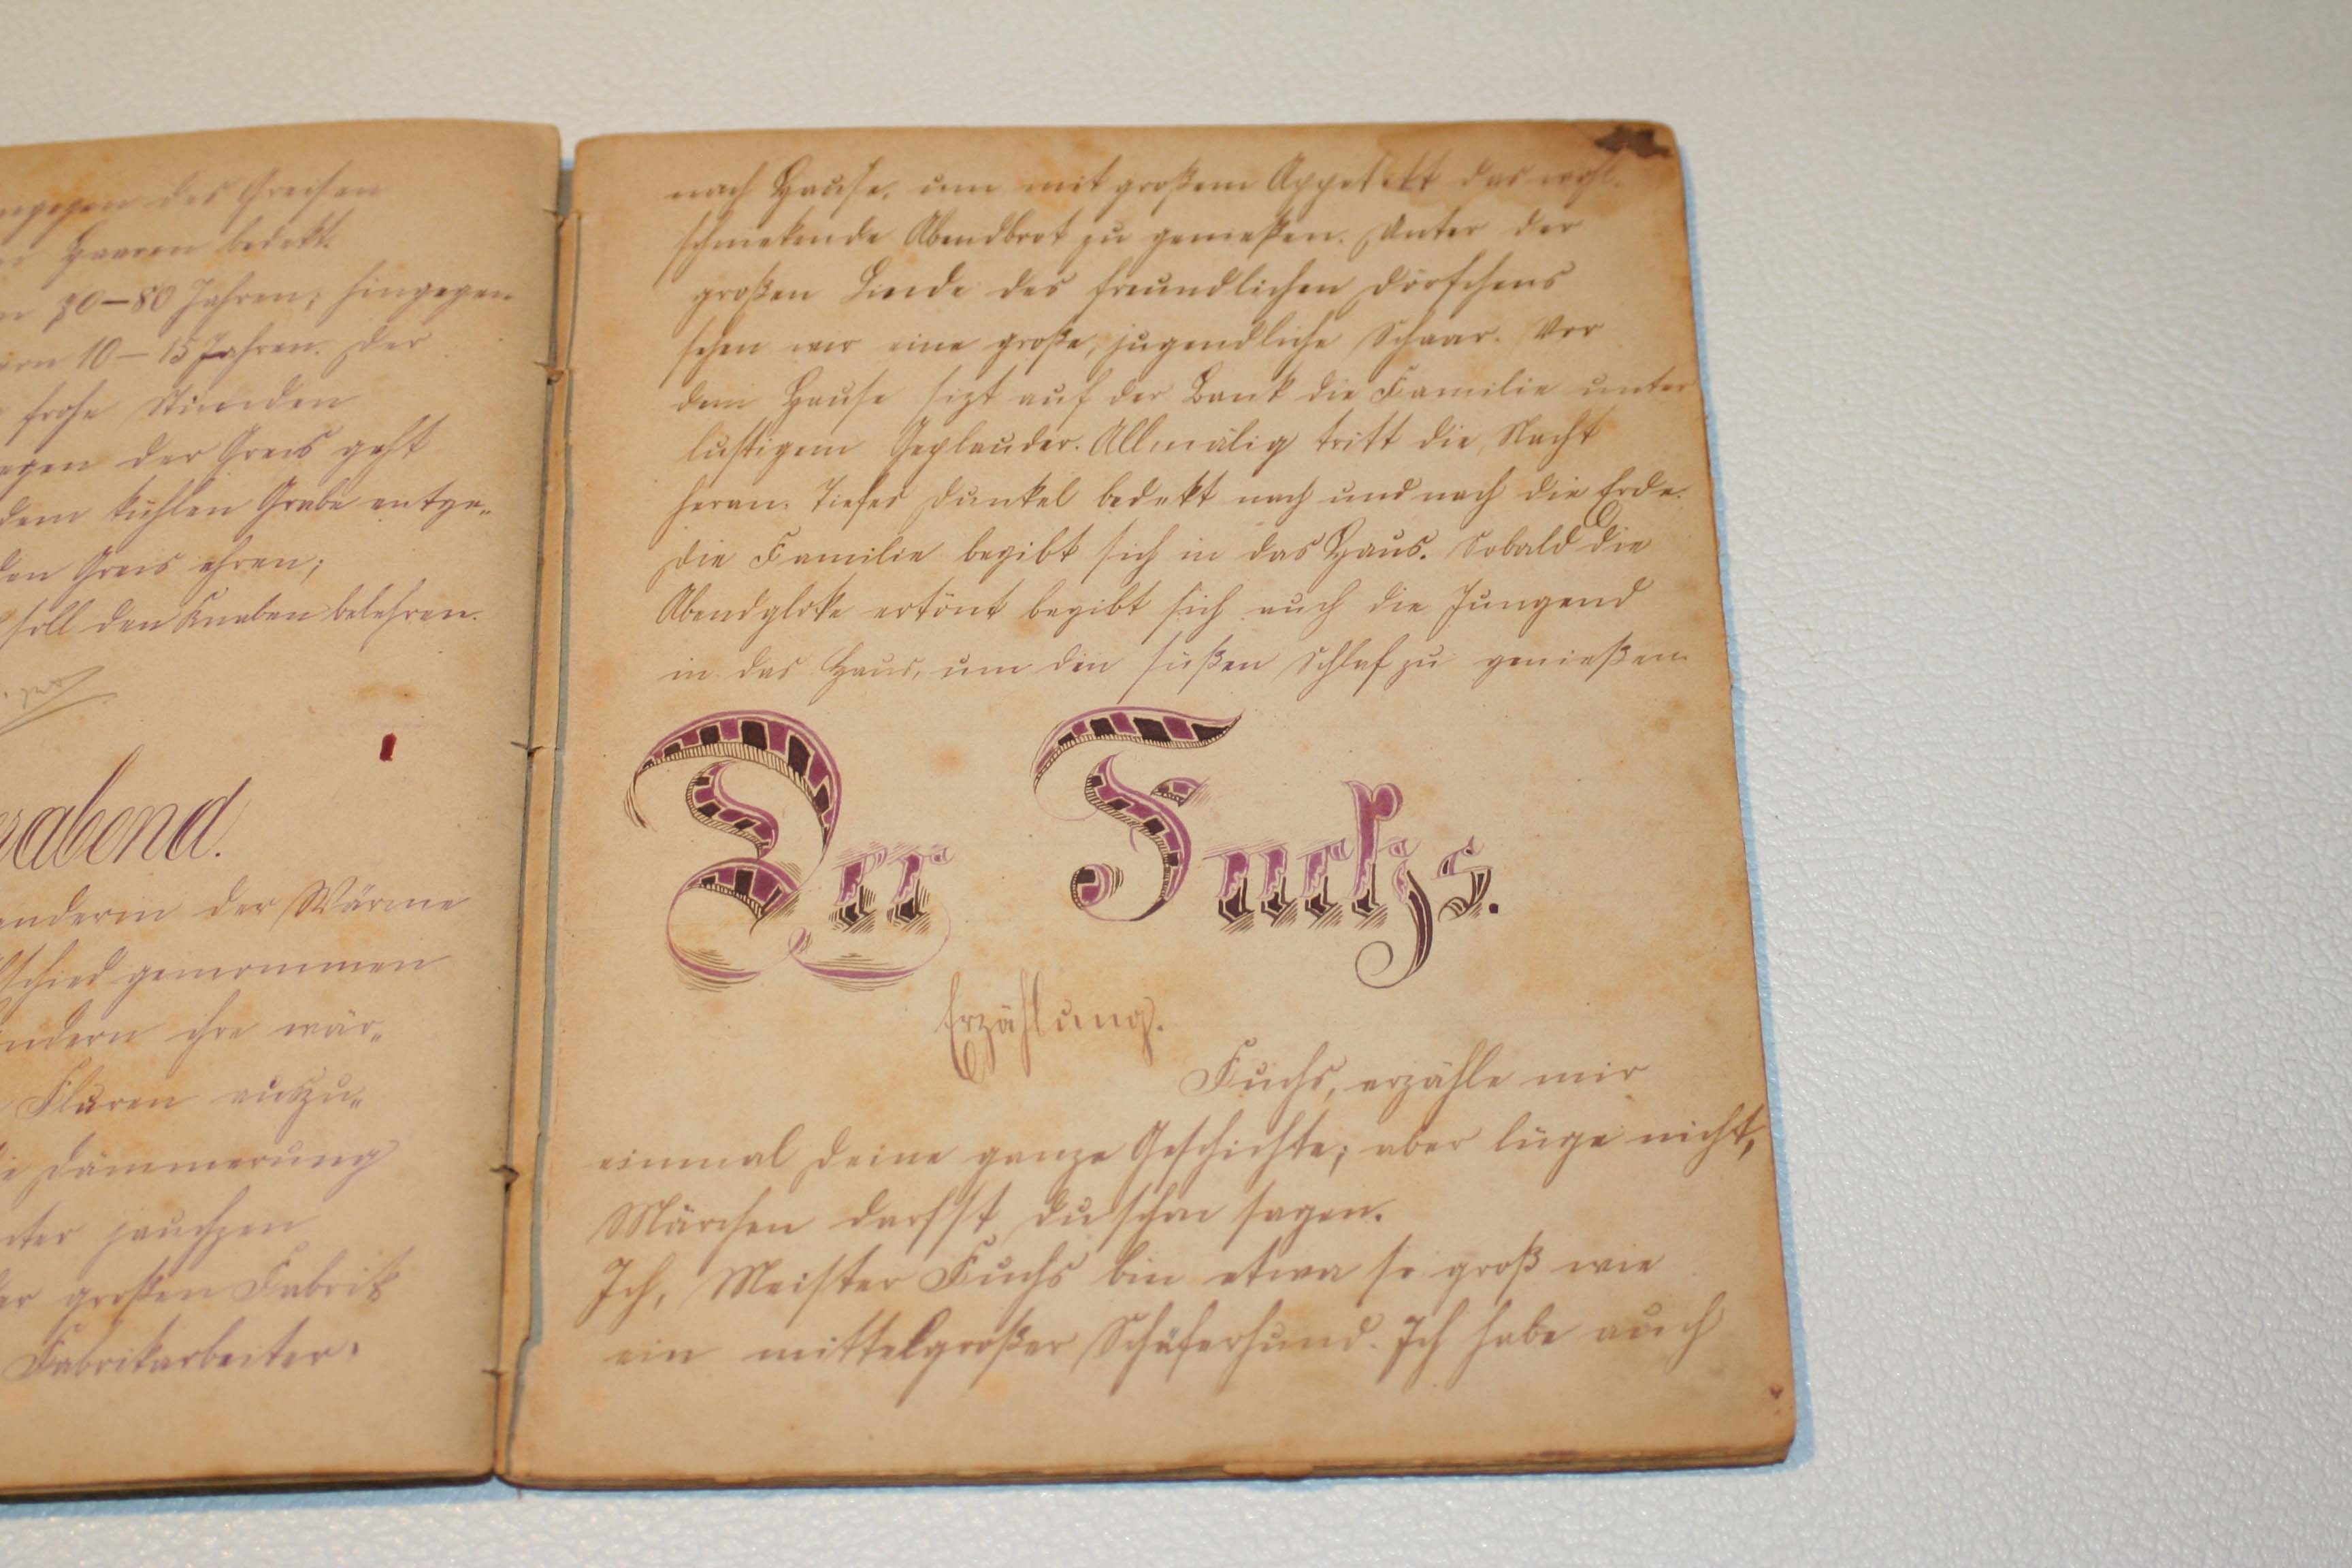 des Greisen
Haaren bedekt.
70–80 Jahren; hingegen
10–15 Jahren. Der
frohe Stunden
der Greis geht
dem kühlen Grabe entge„
den Greis ehren;
soll den Knaben belehren.
abend.
andern der Wärme
genommen
andern ihre wär„
Fluren auszu„
Dämmerung
unter jauchzen
der großen Fabrik
Fabrikarbeiter.
nach Hause, um mit großem Appetikt das wohl„
schmekende Abendbrot zu genießen. Unter der
großen Linde des freundlichen Dörfchens
sehen wir eine große, jugendliche Schaar. Vor
dem Hause sizt auf der Bank die Familie unter
lustigem Geplauder. Allmälig tritt die Nacht
heran. Tiefes Dunkel bedekt nach und nach die Erde.
Die Familie begibt sich in das Haus. Sobald die
Abendgloke ertönt begibt sich auch die Jungend
in das Haus, um den süßen Schlaf zu genießen.
Der Fuchs.
Erzählung.
Fuchs, erzähle mir
einmal deine ganze Geschichte; aber lüge nicht,
Märchen darfst du schon sagen.
Ich, Meister Fuchs bin etwa so groß wie
ein mittelgroßer Schäferhund. Ich habe auch